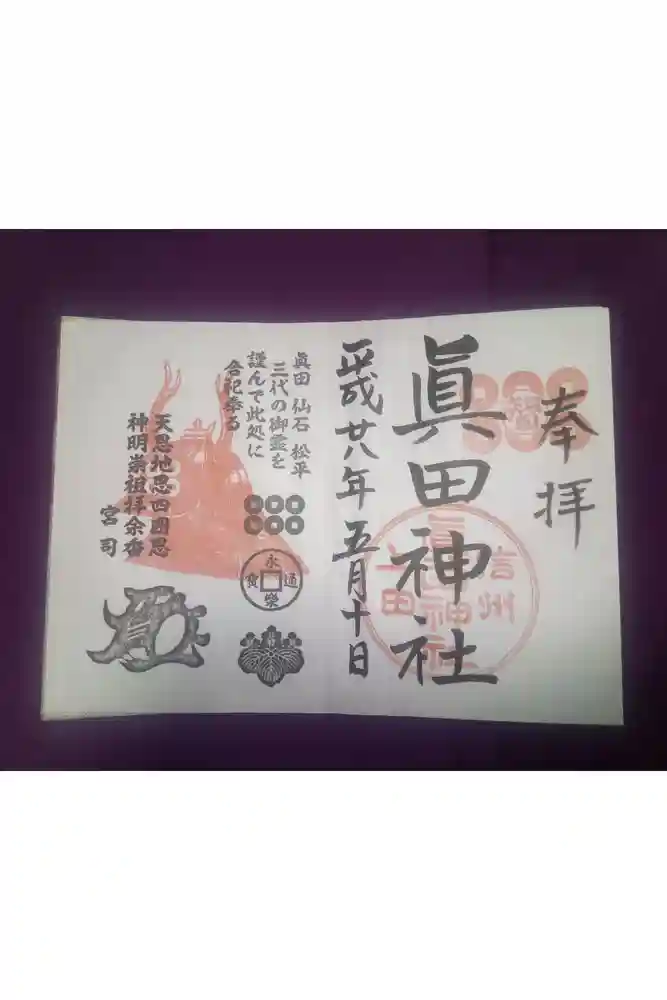 奉拝
眞田神社
信州
上田
眞田神社
平成廿八年五月十日
眞田 仙石 松平
三代の御霊を
謹んで此処に
合祀奉る
永
通
寳
樂
天恩地恩四圍恩
神明崇祖拝
宮司